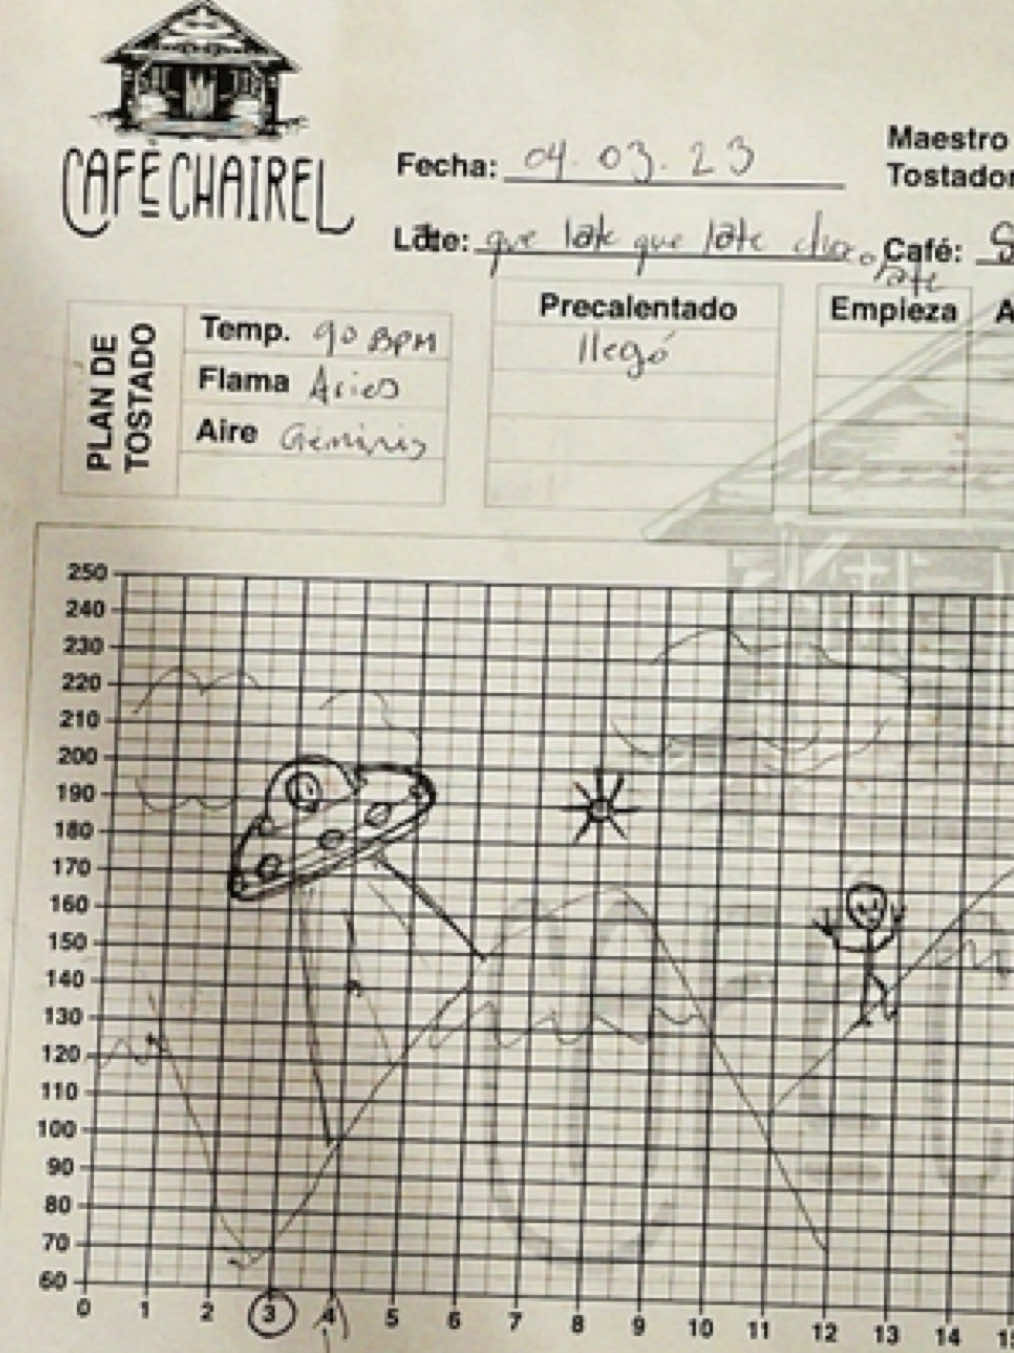 CAFÉ CHAIREL
Fecha: 04.03.23
Maestro
Tostador
Lote: que late que late chocolate
Café: S
PLAN DE TOSTADO
Temp. 90 BPM
Flama Aries
Aire Géminis
Precalentado
llegó
Empieza A
250
240
230
220
210
200
190
180
170
160
150
140
130
120
110
100
90
80
70
60
0 1 2 3 4 5 6 7 8 9 10 11 12 13 14 15